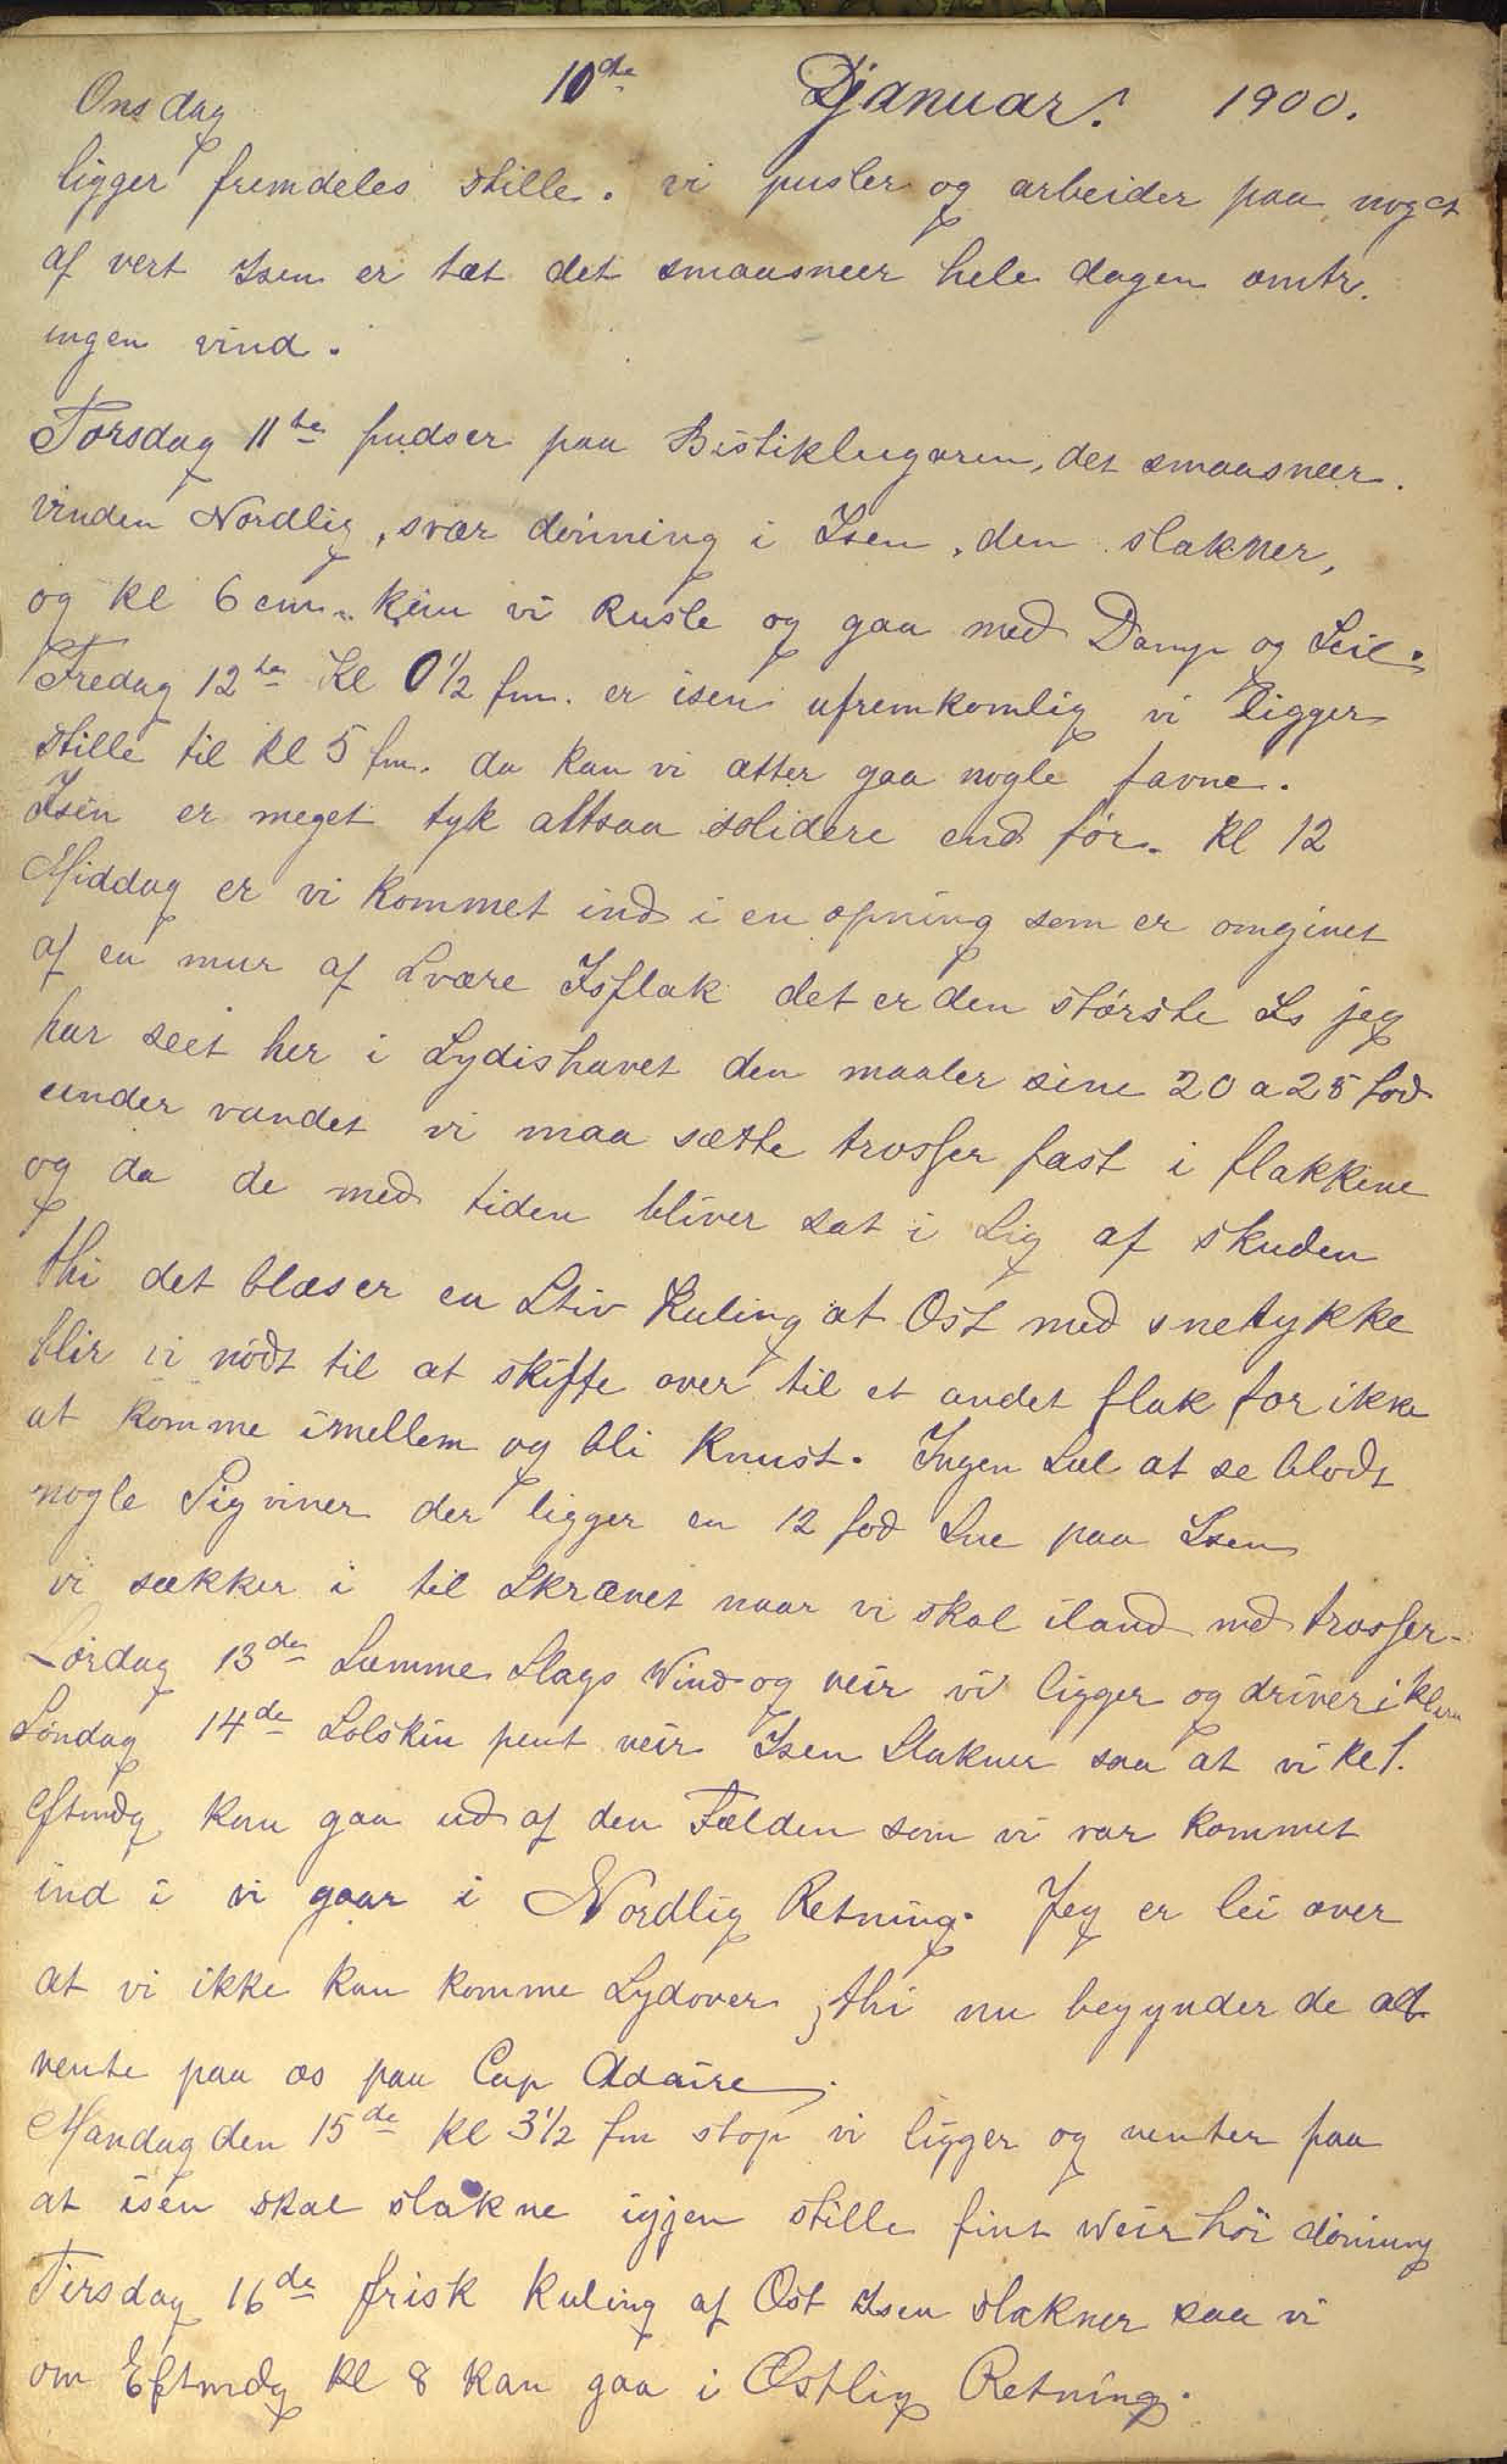 Onsdag 10de Djanuar. 1900.
ligger fremdeles stille. vi pusler og arbeider paa noget
af vert Isen er tæt det smaasneer hele dagen omtr.
ingen vind.
Torsdag 11te pudser paa Bestiklugaren, det smaasneer.
vinden Nordlig, svær dønning i Isen, den slakner,
og kl 6 em. kan vi Rusle og gaa med Damp og Seil.
Fredag 12te Kl 0 1/2 fm. er isen ufremkomlig vi ligger
stille til kl 5 fm. da kan vi atter gaa nogle favne.
Isen er meget tyk altsaa solidere end før. Kl 12
Middag er vi kommet ind i en opning som er omgivet
af en mur af Svære Isflak det er den største Is jeg
har seet her i Sydishavet den maaler sine 20 a 25 fod
under vandet vi maa sætte trosser fast i flakkene
og da de med tiden bliver sat i Sig af skuden
thi det blæser en Stiv Kuling at Ost med snetykke
blir vi nødt til at skifte over til et andet flak for ikke
at komme imellem og bli Knust. Ingen Sæl at se blodt
nogle Pigviner der ligger en 12 fod Sne paa Isen
vi søkker i til Skrævet naar vi skal iland med trosser-
Lørdag 13de Samme Slags Wind og veir vi ligger og driver i klem
Søndag 14de Solskin pent veir Isen Slakner saa at vi kl 1.
Eftmdg kan gaa ud af den Fælden som vi var kommet
ind i vi gaar i Nordlig Retning. Jeg er lei over
at vi ikke kan komme Sydover, thi nu begynder de at
vente paa os paa Cap Adaire.
Mandag den 15de kl 3 1/2 fm stop vi ligger og venter paa
at isen skal slakne igjen stille fint Weir høi dønning
Tirsdag 16de frisk Kuling af Ost Isen slakner saa vi
om Eftmdg kl 8 kan gaa i Østlig Retning.